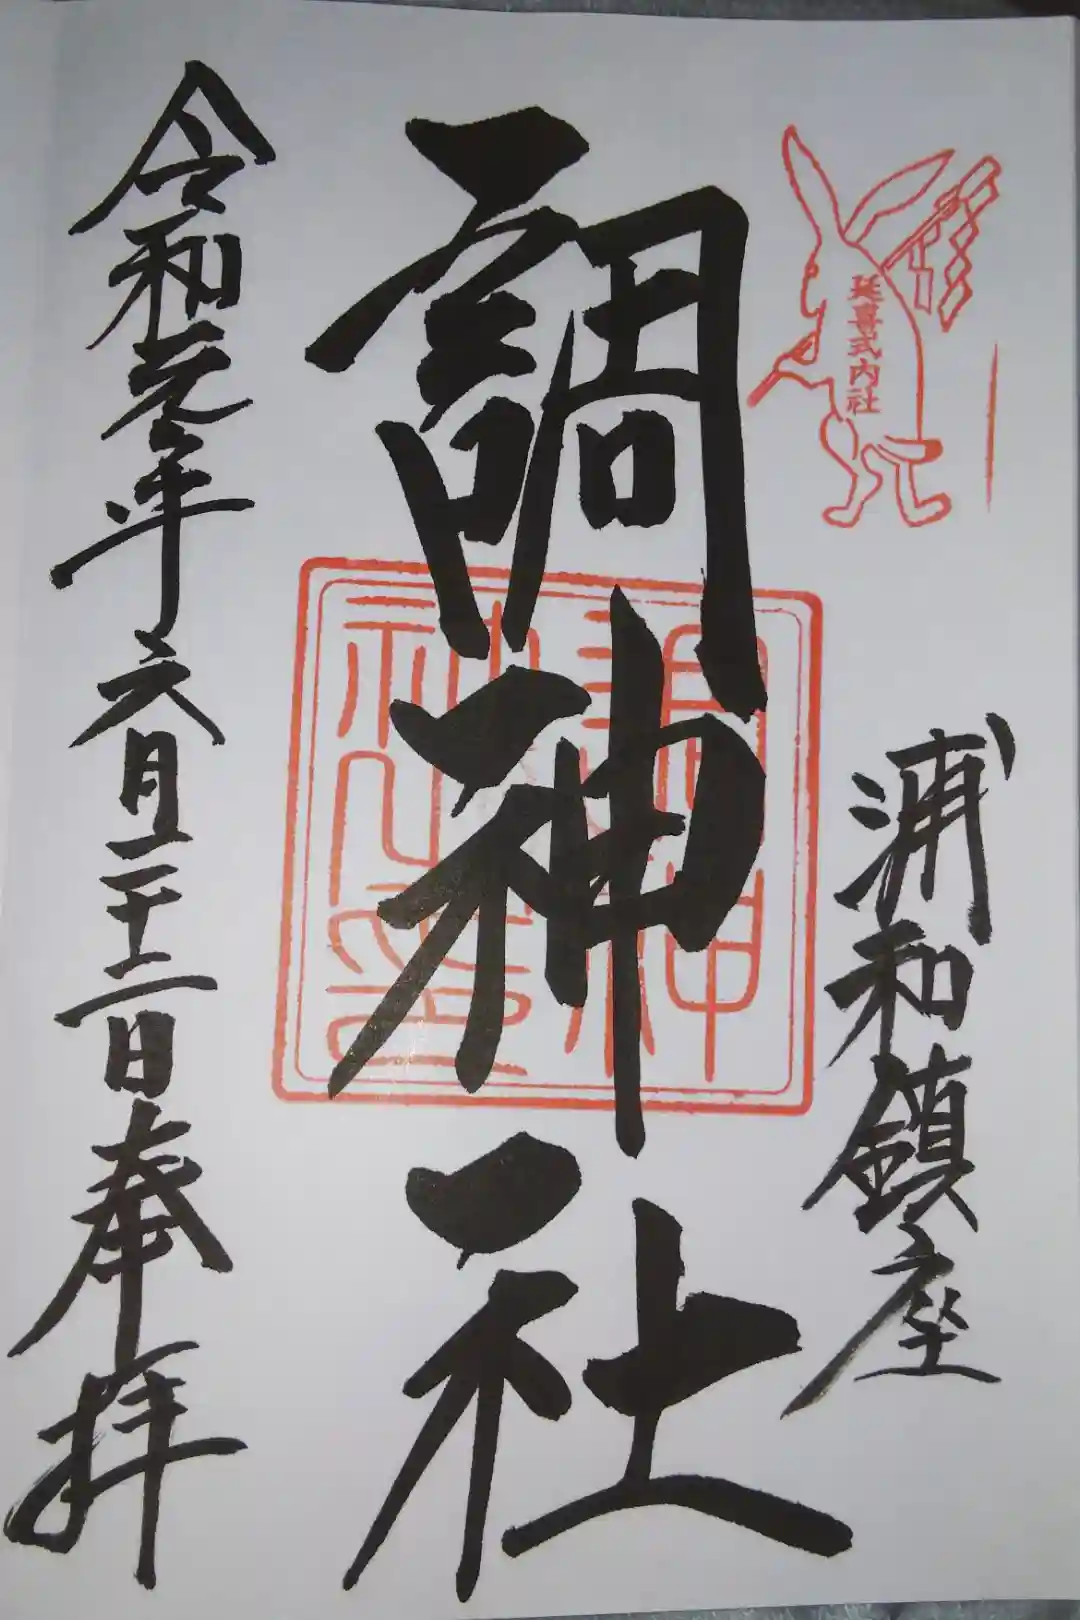 延喜式内社
浦和鎮座
調神社
調神社之印
令和元年六月二十二日奉拝